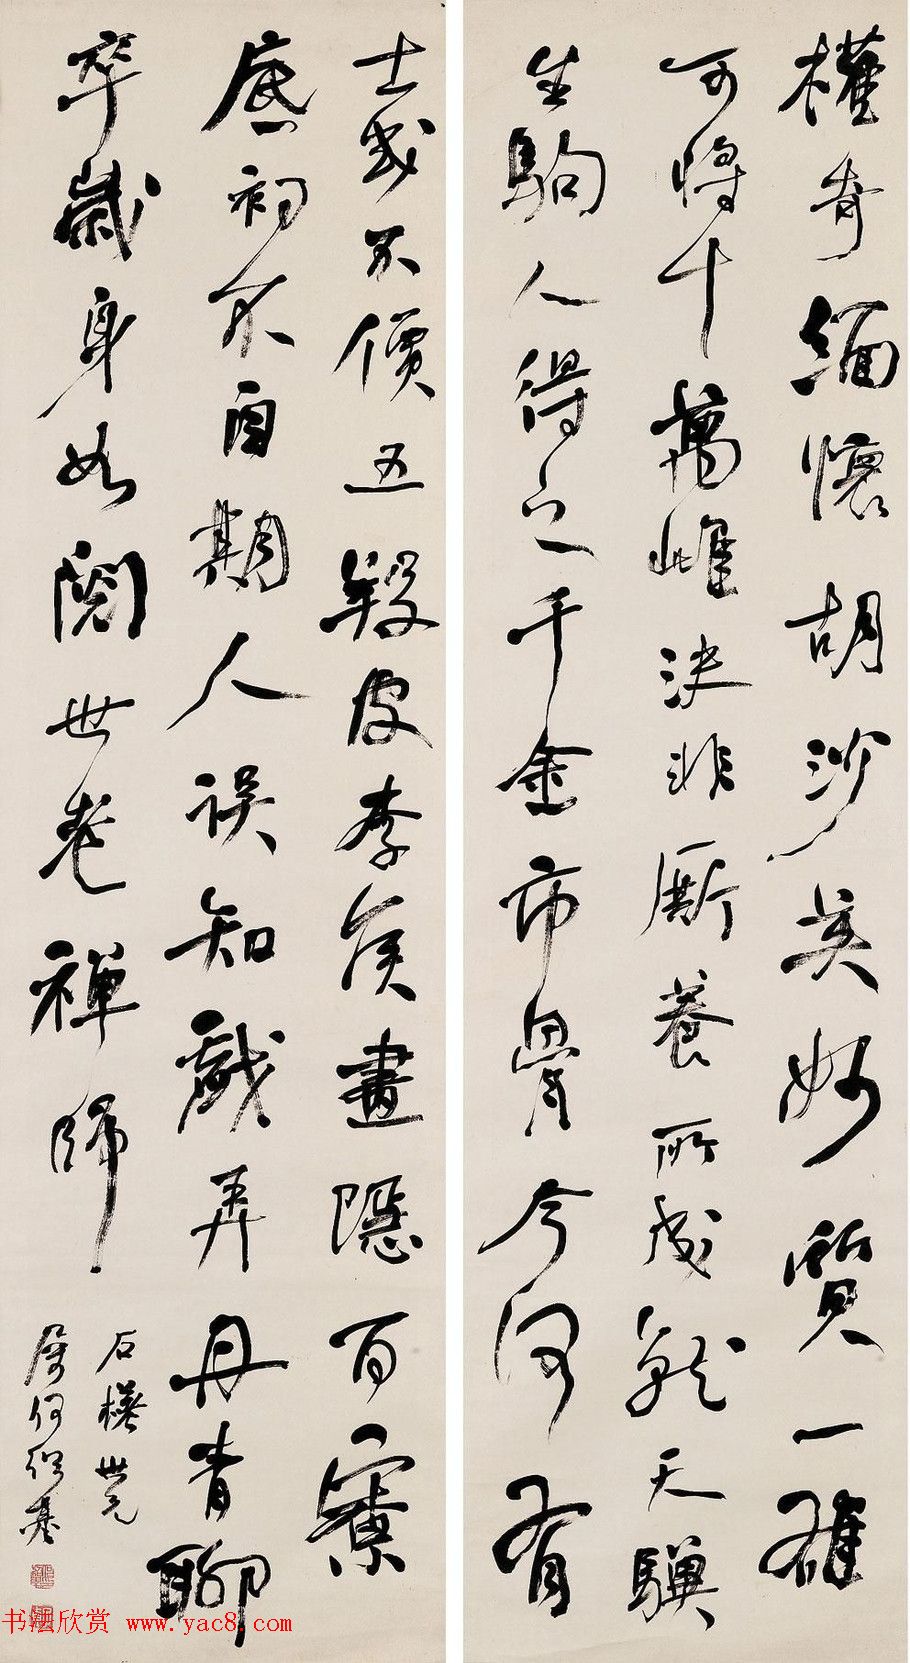 權奇緬懷胡沙英妙質一雄
可將十萬雌決非廝養所成就天驥
生駒人得之千金市骨今何有
士或不價五羖皮李侯畫隱百寮
底初不自期人誤知戲弄丹青聊
卒歲身如閱世老禪師
石世兄
屬何紹基
书法欣赏 www.yac8.com